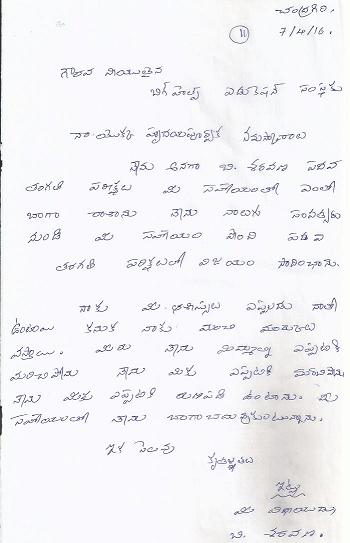 చంద్రగిరి.
7/4/16.
11
గౌరవ నీయులైన
బిగ్ హెల్ప్ ఎడుకేషన్ సంస్థకు
నా యొక్క హృదయపూర్వక నమస్కారాలు
నేను అనగా బి. శరవణ పదవ
తరగతి పరీక్షలు మీ సహాయంతో ఎంతో
బాగా రాశాను నేను నాలుగు సంవత్సరాల
నుండి మీ సహాయం పొంది పదవ
తరగతి పరీక్షలలో విజయం సాధించాను.
నాకు మీ ఆశీస్సులు ఎప్పుడు నాతో
ఉంటాయి కనుక నాకు మంచి మార్కులు
వస్తాయి. మీరు నేను మిమ్మల్ని ఎప్పటికి
మరిచిపోను నేను మీకు ఎప్పటికి
నేను మీకు ఎప్పటికి రుణపడి ఉంటాను. మీ
సహాయంతో నేను బాగా చదువుకుంటున్నాను.
ఇక సెలవు
కృతజ్ఞతలు
ఇట్లు
మీ విధేయుడు
బి. శరవణ.